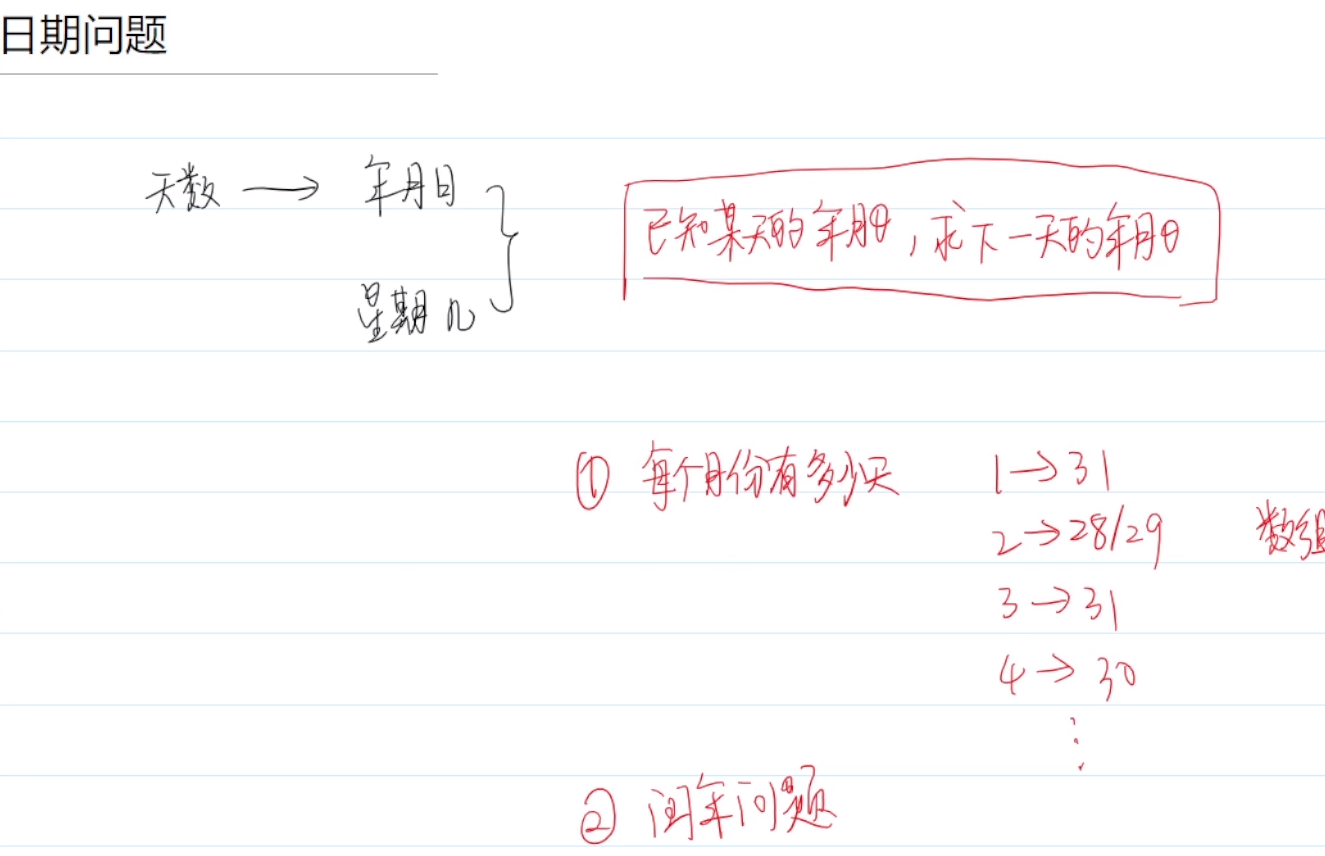 日期问题
天数 → 年月日
星期几
已知某天的年月日,求下一天的年月日
① 每个月份有多少天
1→31
2→28/29
数组
3→31
4→30
⋮
② 闰年问题